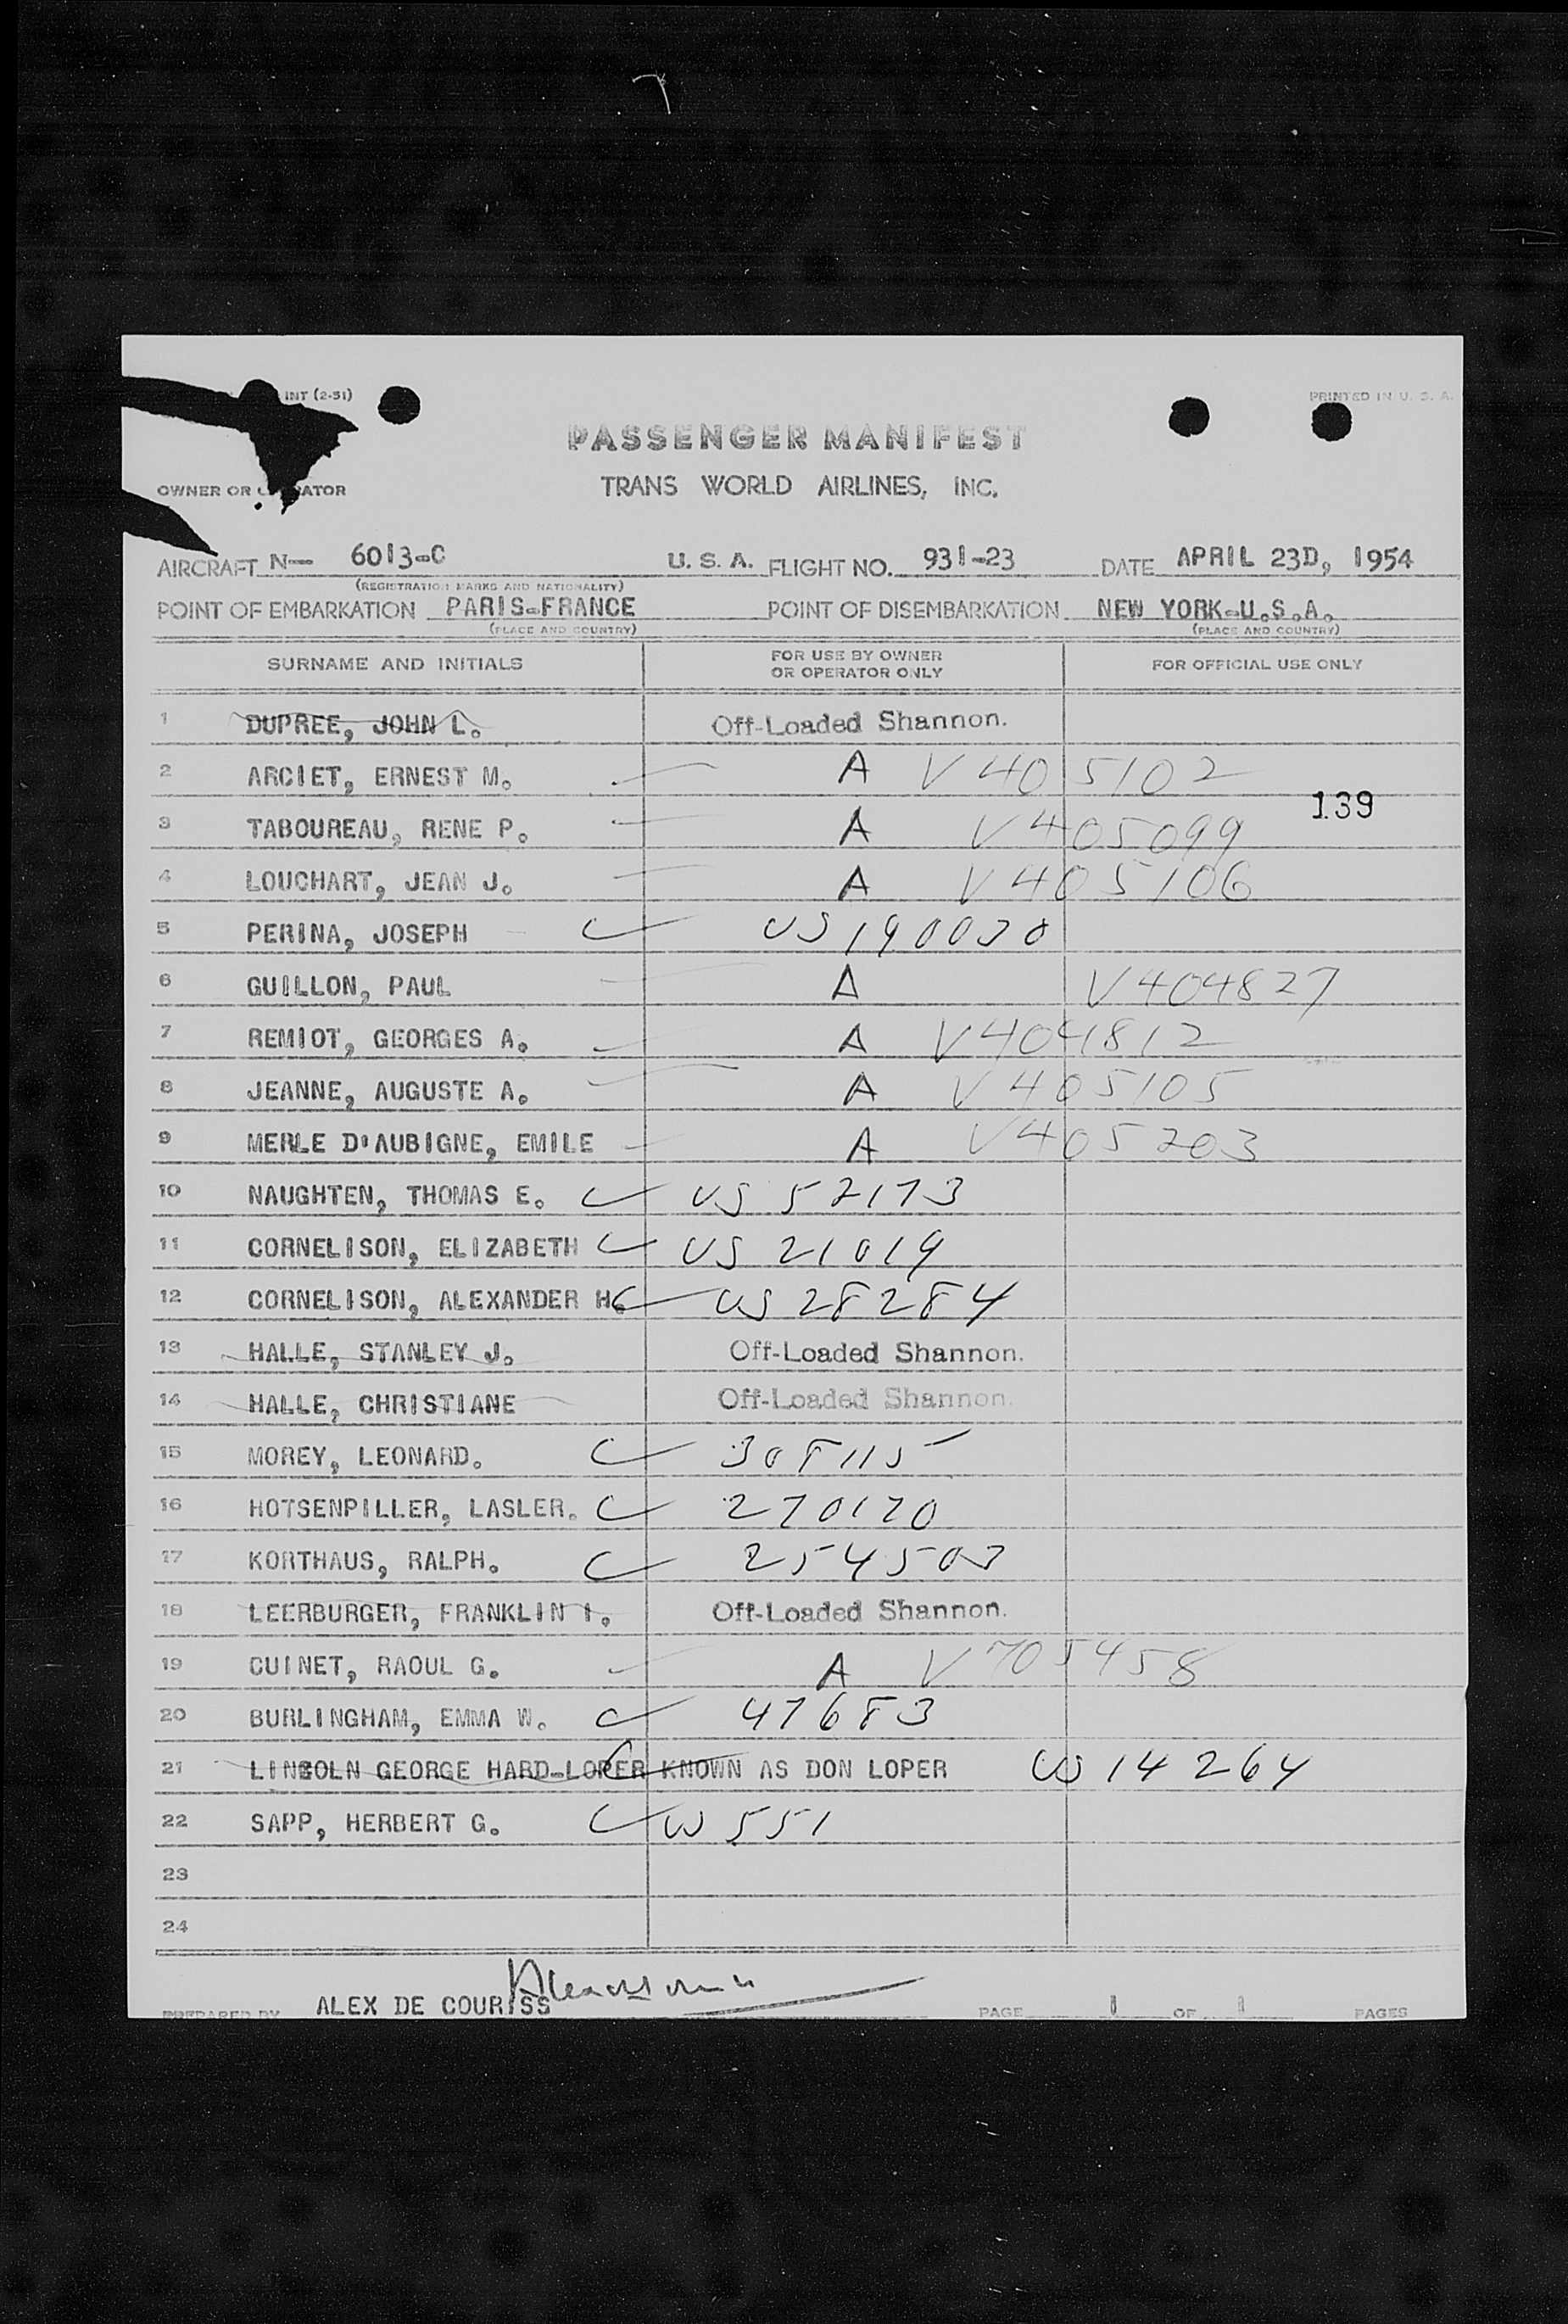 INT (2-51)
PRINTED IN U. S. A.
PASSENGER MANIFEST
OWNER OR
TRANS WORLD AIRLINES, INC.
AIRCRAFT N— 6013-C U. S. A. FLIGHT NO. 931-23 DATE APRIL 23D, 1954
(REGISTRATION MARKS AND NATIONALITY)
POINT OF EMBARKATION PARIS-FRANCE POINT OF DISEMBARKATION NEW YORK-U.S.A.
(PLACE AND COUNTRY) (PLACE AND COUNTRY)
SURNAME AND INITIALS FOR USE BY OWNER OR OPERATOR ONLY FOR OFFICIAL USE ONLY
1 DUPREE, JOHN L. Off-Loaded Shannon.
2 ARCIET, ERNEST M. A V 405102
139
3 TABOUREAU, RENE P. A V405099
4 LOUCHART, JEAN J. A V405106
5 PERINA, JOSEPH US 190030
6 GUILLON, PAUL A V404827
7 REMIOT, GEORGES A. A V404812
8 JEANNE, AUGUSTE A. A V405105
9 MERLE D'AUBIGNE, EMILE A V405203
10 NAUGHTEN, THOMAS E. US 52173
11 CORNELISON, ELIZABETH US 21019
12 CORNELISON, ALEXANDER H. US 28284
13 HALLE, STANLEY J. Off-Loaded Shannon.
14 HALLE, CHRISTIANE Off-Loaded Shannon.
15 MOREY, LEONARD. 308115
16 HOTSENPILLER, LASLER. 270170
17 KORTHAUS, RALPH. 254503
18 LEERBURGER, FRANKLIN I. Off-Loaded Shannon.
19 CUINET, RAOUL G. A V705458
20 BURLINGHAM, EMMA W. 47683
21 LINCOLN GEORGE HARD-LOPER KNOWN AS DON LOPER US 14264
22 SAPP, HERBERT G. US 551
23
24
PREPARED BY ALEX DE COURISS PAGE 1 OF 1 PAGES